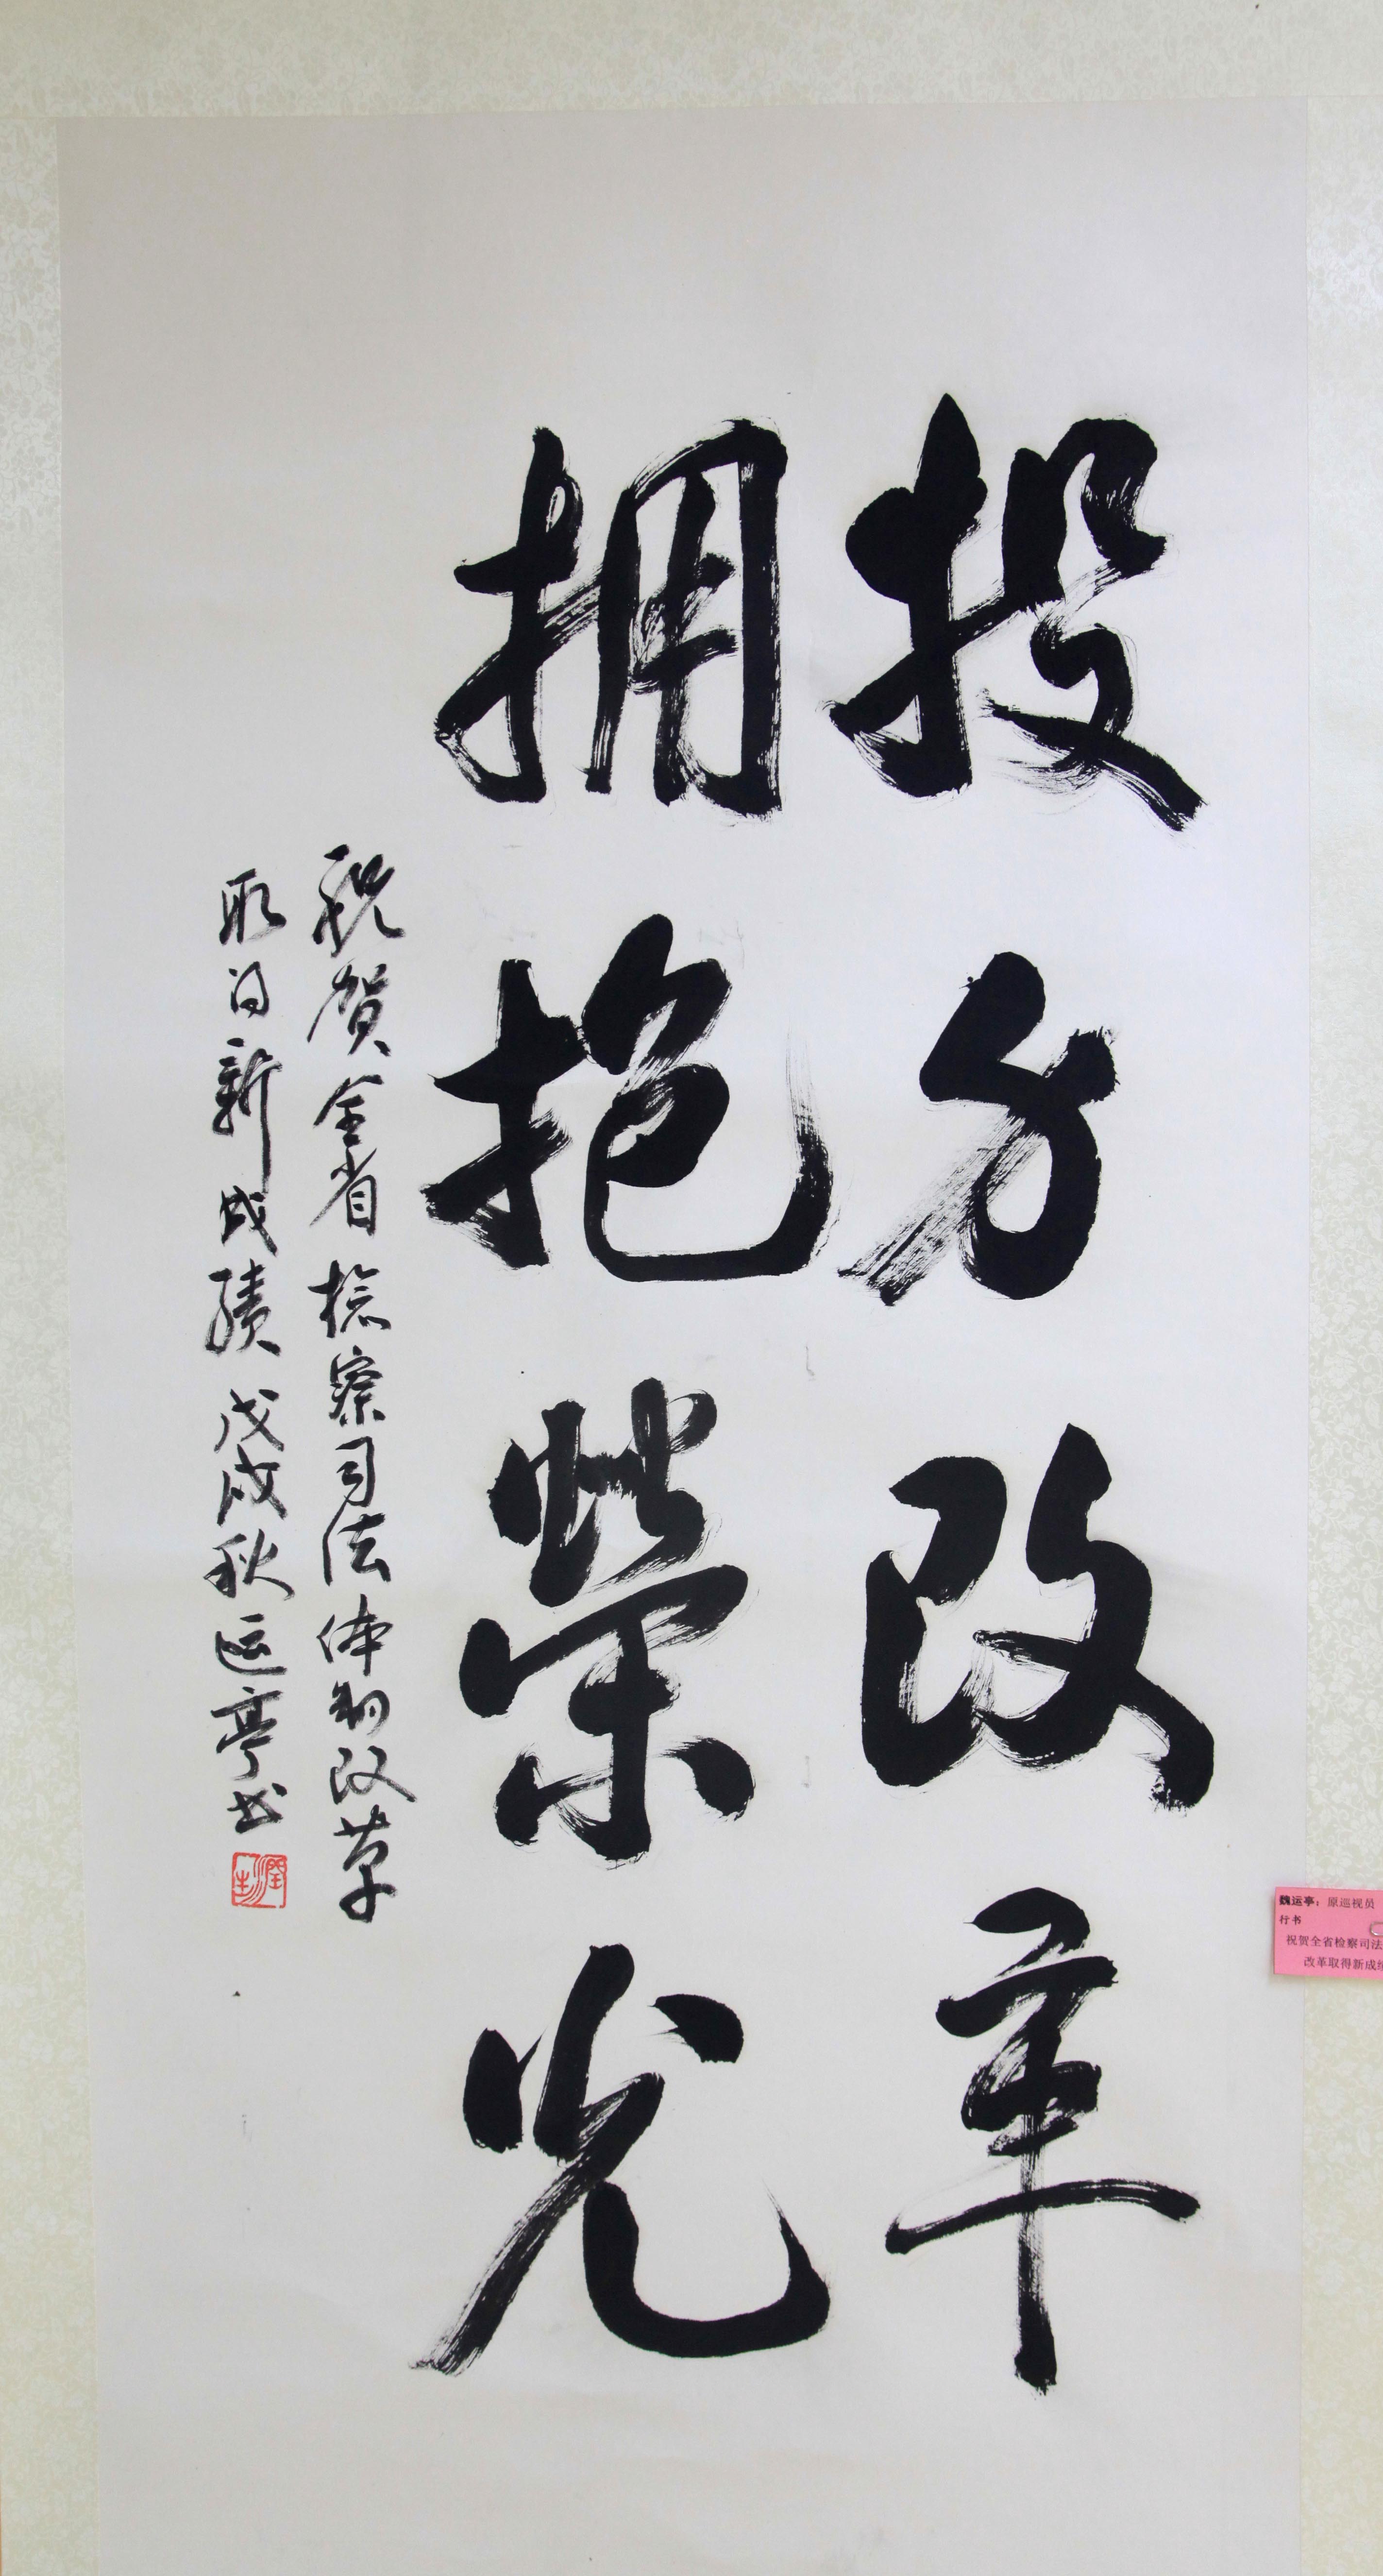 投身改革
拥抱榮光
祝贺全省检察司法体制改革
取得新成绩 戊戌秋 运亭书
魏运亭：原巡视员
行书
祝贺全省检察司法
改革取得新成